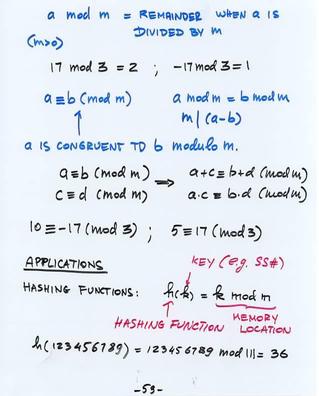 a mod m = REMAINDER WHEN a IS
DIVIDED BY m
(m>0)
17 mod 3 = 2 ; -17 mod 3 = 1
a ≡ b (mod m) a mod m = b mod m
m | (a-b)
a IS CONGRUENT TO b modulo m.
a ≡ b (mod m) → a+c ≡ b+d (mod m)
c ≡ d (mod m) a·c ≡ b·d (mod m)
10 ≡ -17 (mod 3) ; 5 ≡ 17 (mod 3)
APPLICATIONS
KEY (e.g. SS#)
HASHING FUNCTIONS: h(k) = k mod m
HASHING FUNCTION MEMORY LOCATION
h(123456789) = 123456789 mod 111 = 36
-53-